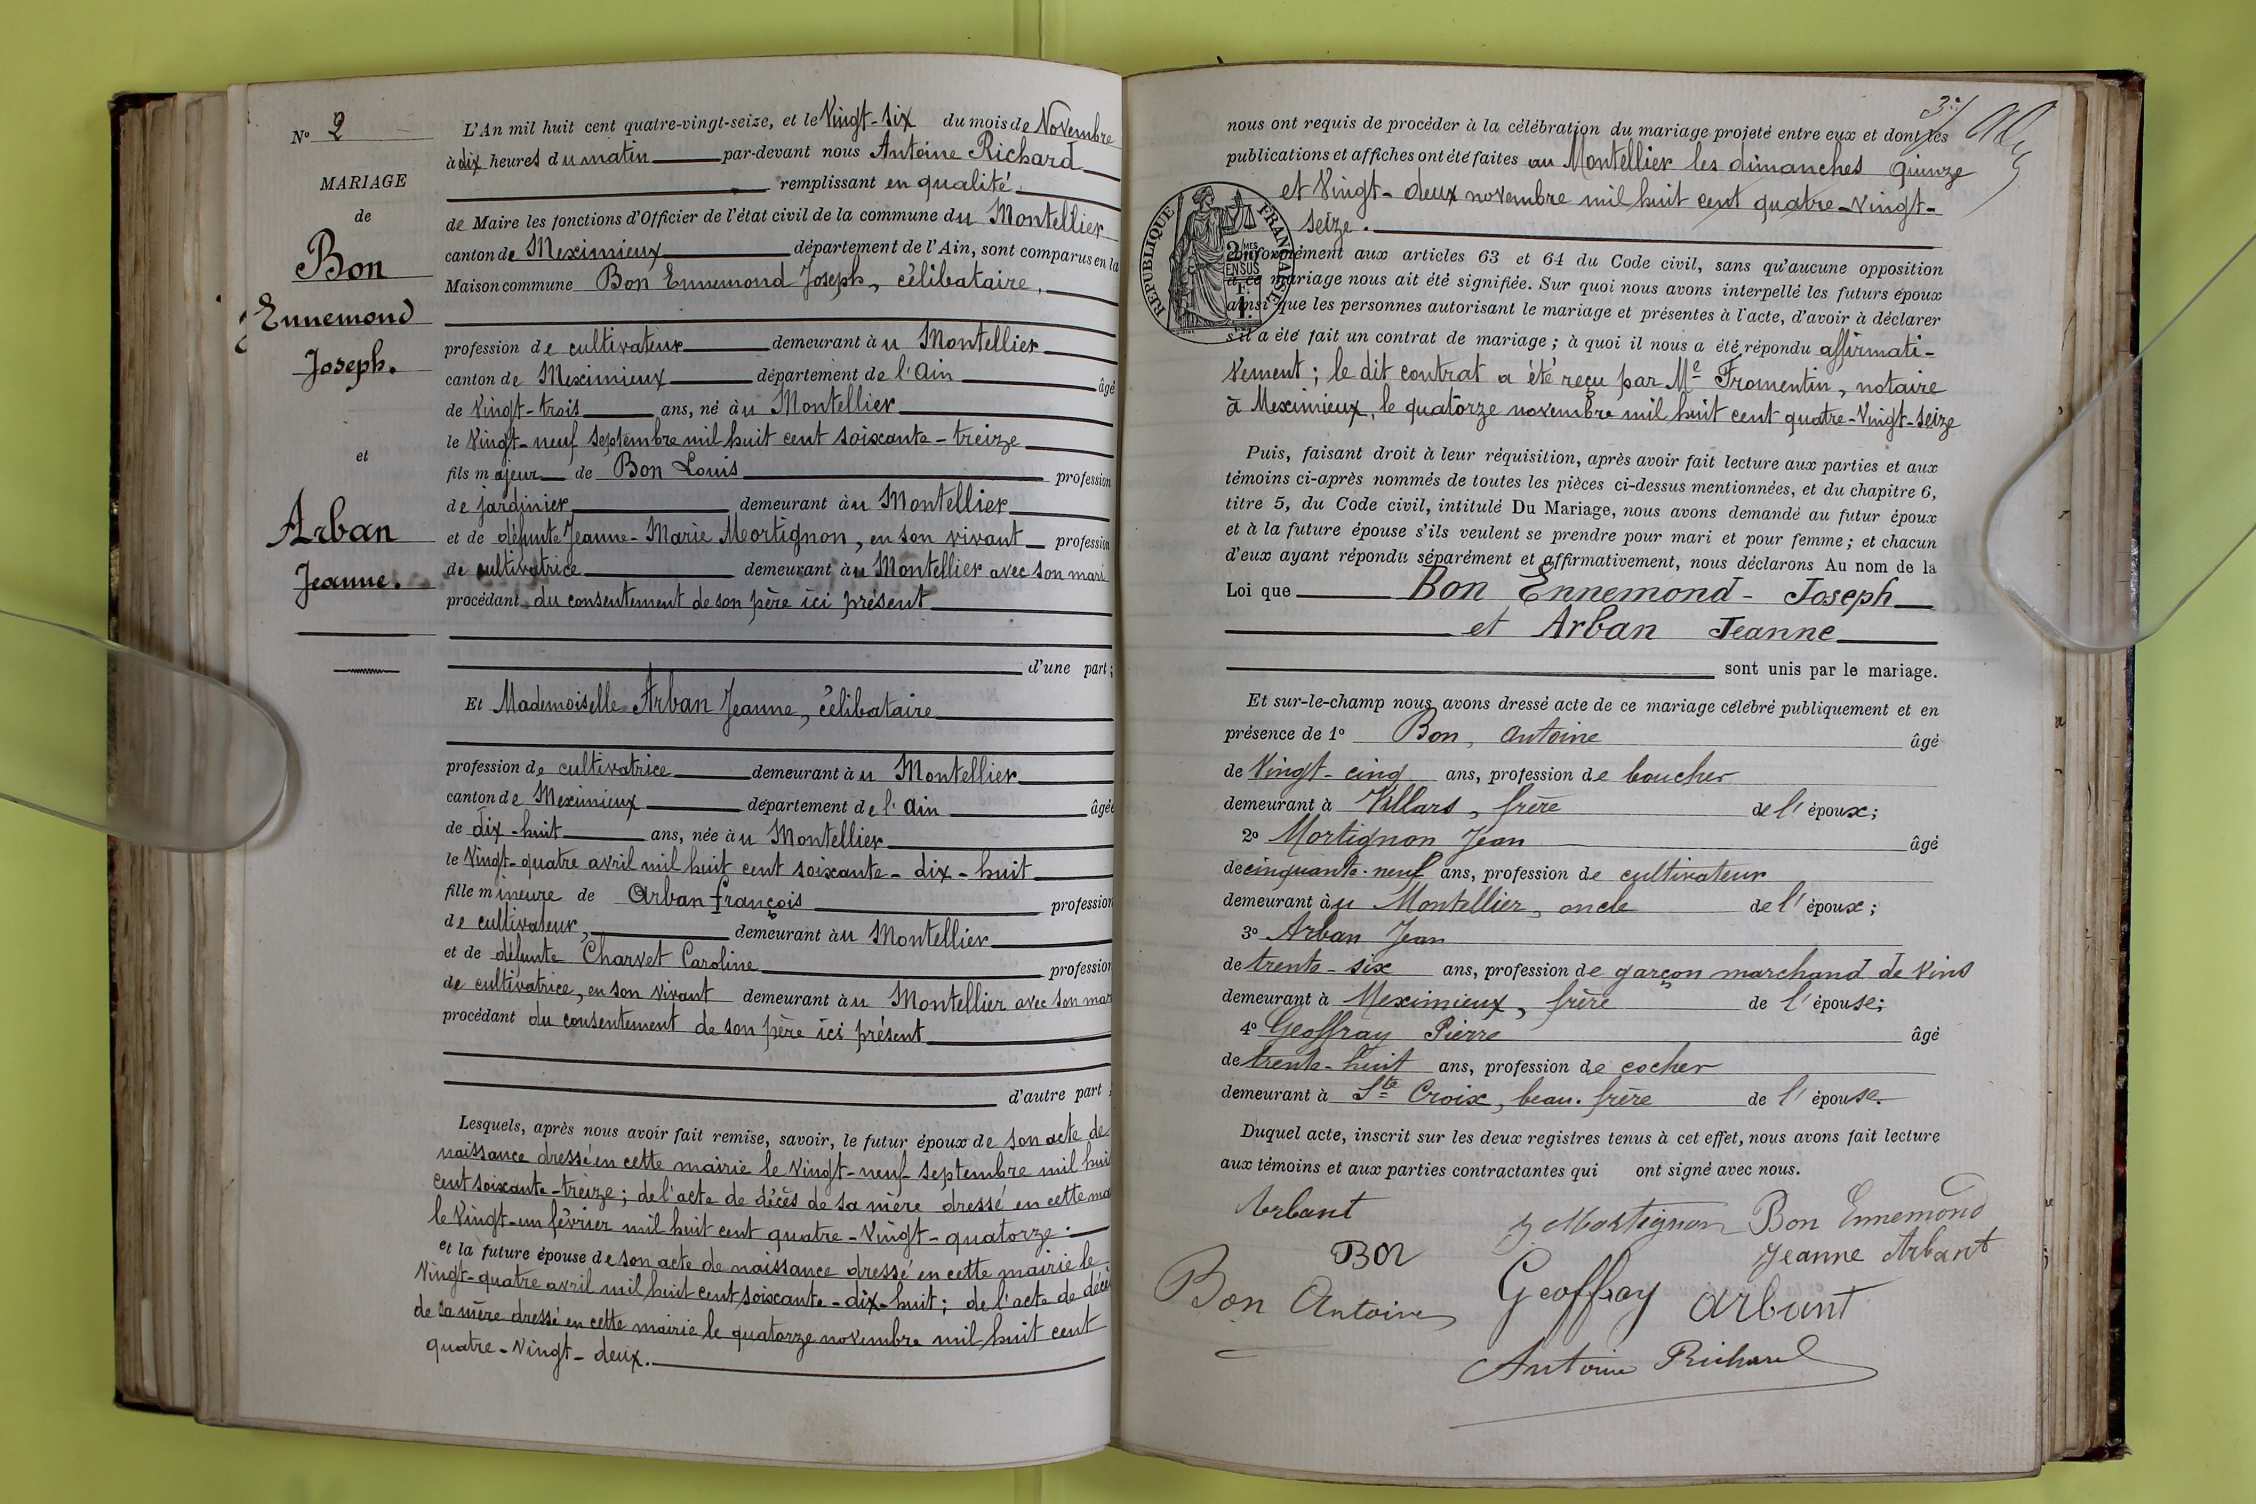 Nº 2
MARIAGE
de
Bon
Ennemond
Joseph.
et
Arban
Jeanne.
L'An mil huit cent quatre-vingt-seize, et le Vingt-six du mois de Novembre
à dix heures du matin par-devant nous Antoine Richard
remplissant en qualité
de Maire les fonctions d'Officier de l'état civil de la commune du Montellier
canton de Meximieux département de l'Ain, sont comparus en la
Maison commune Bon Ennemond Joseph, célibataire,
profession de cultivateur demeurant à u Montellier
canton de Meximieux département de l'Ain âgé
de Vingt-trois ans, né à u Montellier
le Vingt-neuf septembre mil huit cent soixante-treize
fils majeur de Bon Louis profession
de jardinier demeurant à u Montellier
et de défunte Jeanne-Marie Mortignon, en son vivant profession
de cultivatrice demeurant à u Montellier avec son mari
procédant du consentement de son père ici présent
d'une part;
Et Mademoiselle Arban Jeanne, célibataire
profession de cultivatrice demeurant à u Montellier
canton de Meximieux département de l'Ain âgée
de dix-huit ans, née à u Montellier
le Vingt-quatre avril mil huit cent soixante-dix-huit
fille mineure de Arban françois profession
de cultivateur, demeurant à u Montellier
et de défunte Charvet Caroline profession
de cultivatrice, en son vivant demeurant à u Montellier avec son mar
procédant du consentement de son père ici présent
d'autre part;
Lesquels, après nous avoir fait remise, savoir, le futur époux de son acte de
naissance dressé en cette mairie le Vingt-neuf septembre mil huit
cent soixante-treize; de l'acte de décès de sa mère dressé en cette ma
le Vingt-un février mil huit cent quatre-Vingt-quatorze.
et la future épouse de son acte de naissance dressé en cette mairie le
Vingt-quatre avril mil huit cent soixante-dix-huit; de l'acte de décès
de sa mère dressé en cette mairie le quatorze novembre mil huit cent
quatre-Vingt-deux.
3
nous ont requis de procéder à la célébration du mariage projeté entre eux et dont les
publications et affiches ont été faites au Montellier les dimanches quinze
et Vingt-deux novembre mil huit cent quatre-Vingt-
seize.
RÉPUBLIQUE FRANÇAISE
2 MES
EN SUS
conformément aux articles 63 et 64 du Code civil, sans qu'aucune opposition
à ce mariage nous ait été signifiée. Sur quoi nous avons interpellé les futurs époux
ainsi que les personnes autorisant le mariage et présentes à l'acte, d'avoir à déclarer
s'il a été fait un contrat de mariage; à quoi il nous a été répondu affirmati-
vement; le dit contrat a été reçu par Me Fromentin, notaire
à Meximieux, le quatorze novembre mil huit cent quatre-Vingt-seize
Puis, faisant droit à leur réquisition, après avoir fait lecture aux parties et aux
témoins ci-après nommés de toutes les pièces ci-dessus mentionnées, et du chapitre 6,
titre 5, du Code civil, intitulé Du Mariage, nous avons demandé au futur époux
et à la future épouse s'ils veulent se prendre pour mari et pour femme; et chacun
d'eux ayant répondu séparément et affirmativement, nous déclarons Au nom de la
Loi que Bon Ennemond-Joseph
et Arban Jeanne
sont unis par le mariage.
Et sur-le-champ nous avons dressé acte de ce mariage célébré publiquement et en
présence de 1º Bon, Antoine âgé
de Vingt-cinq ans, profession de boucher
demeurant à Villars, frère de l'époux;
2º Mortignon Jean âgé
de cinquante-neuf ans, profession de cultivateur
demeurant à u Montellier, oncle de l'époux;
3º Arban Jean
de trente-six ans, profession de garçon marchand de vins
demeurant à Meximieux, frère de l'épouse;
4º Geoffray Pierre âgé
de trente-huit ans, profession de cocher
demeurant à Ste Croix, beau-frère de l'épouse.
Duquel acte, inscrit sur les deux registres tenus à cet effet, nous avons fait lecture
aux témoins et aux parties contractantes qui ont signé avec nous.
Arbant J Mortignon Bon Ennemond
Bon Jeanne Arbant
Bon Antoine Geoffray Arbant
Antoine Richard